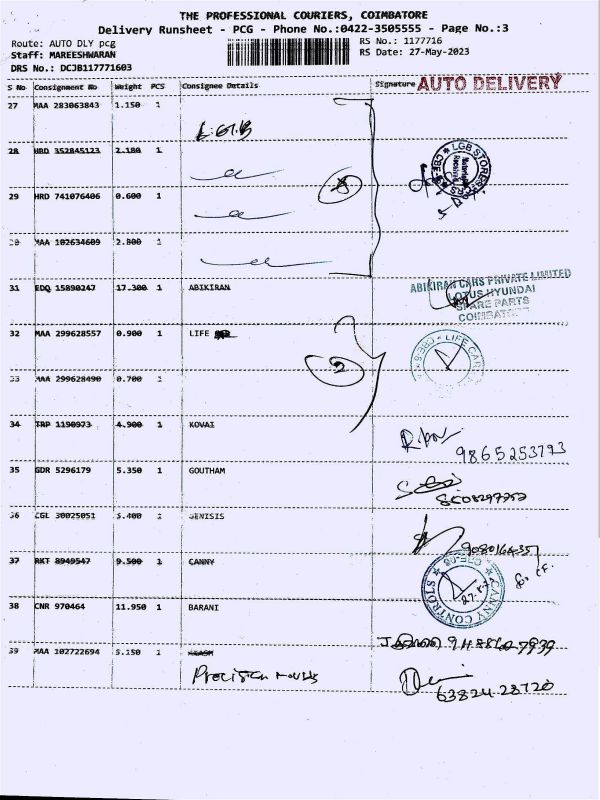 THE PROFESSIONAL COURIERS, COIMBATORE
Delivery Runsheet - PCG - Phone No.:0422-3505555 - Page No.:3
Route: AUTO DLY pcg RS No.: 1177716
Staff: MAREESHWARAN RS Date: 27-May-2023
DRS No.: DCJB117771603
S No Consignment No Weight PCS Consignee Details Signature AUTO DELIVERY
27 MAA 283063843 1.150 1
L.G.B
28 HRD 352845123 2.180 1
LGB STORES
29 HRD 741076406 0.600 1
30 MAA 102634609 2.800 1
31 EDQ 15890247 17.300 1 ABIKIRAN
ABIKIRAN CARS PRIVATE LIMITED
LOTUS HYUNDAI
SPARE PARTS
COIMBATORE
32 MAA 299628557 0.900 1 LIFE
LIFE CARE
33 MAA 299628490 0.700 1
2
34 TRP 1190973 4.900 1 KOVAI
9865253793
35 GDR 5296179 5.350 1 GOUTHAM
36 CGL 30025051 5.400 1 GENISIS
37 RKT 8949547 9.500 1 CANNY
CANNY CONTROLS
38 CNR 970464 11.950 1 BARANI
39 MAA 102722694 5.150 1
Precision moulds
63824 28720